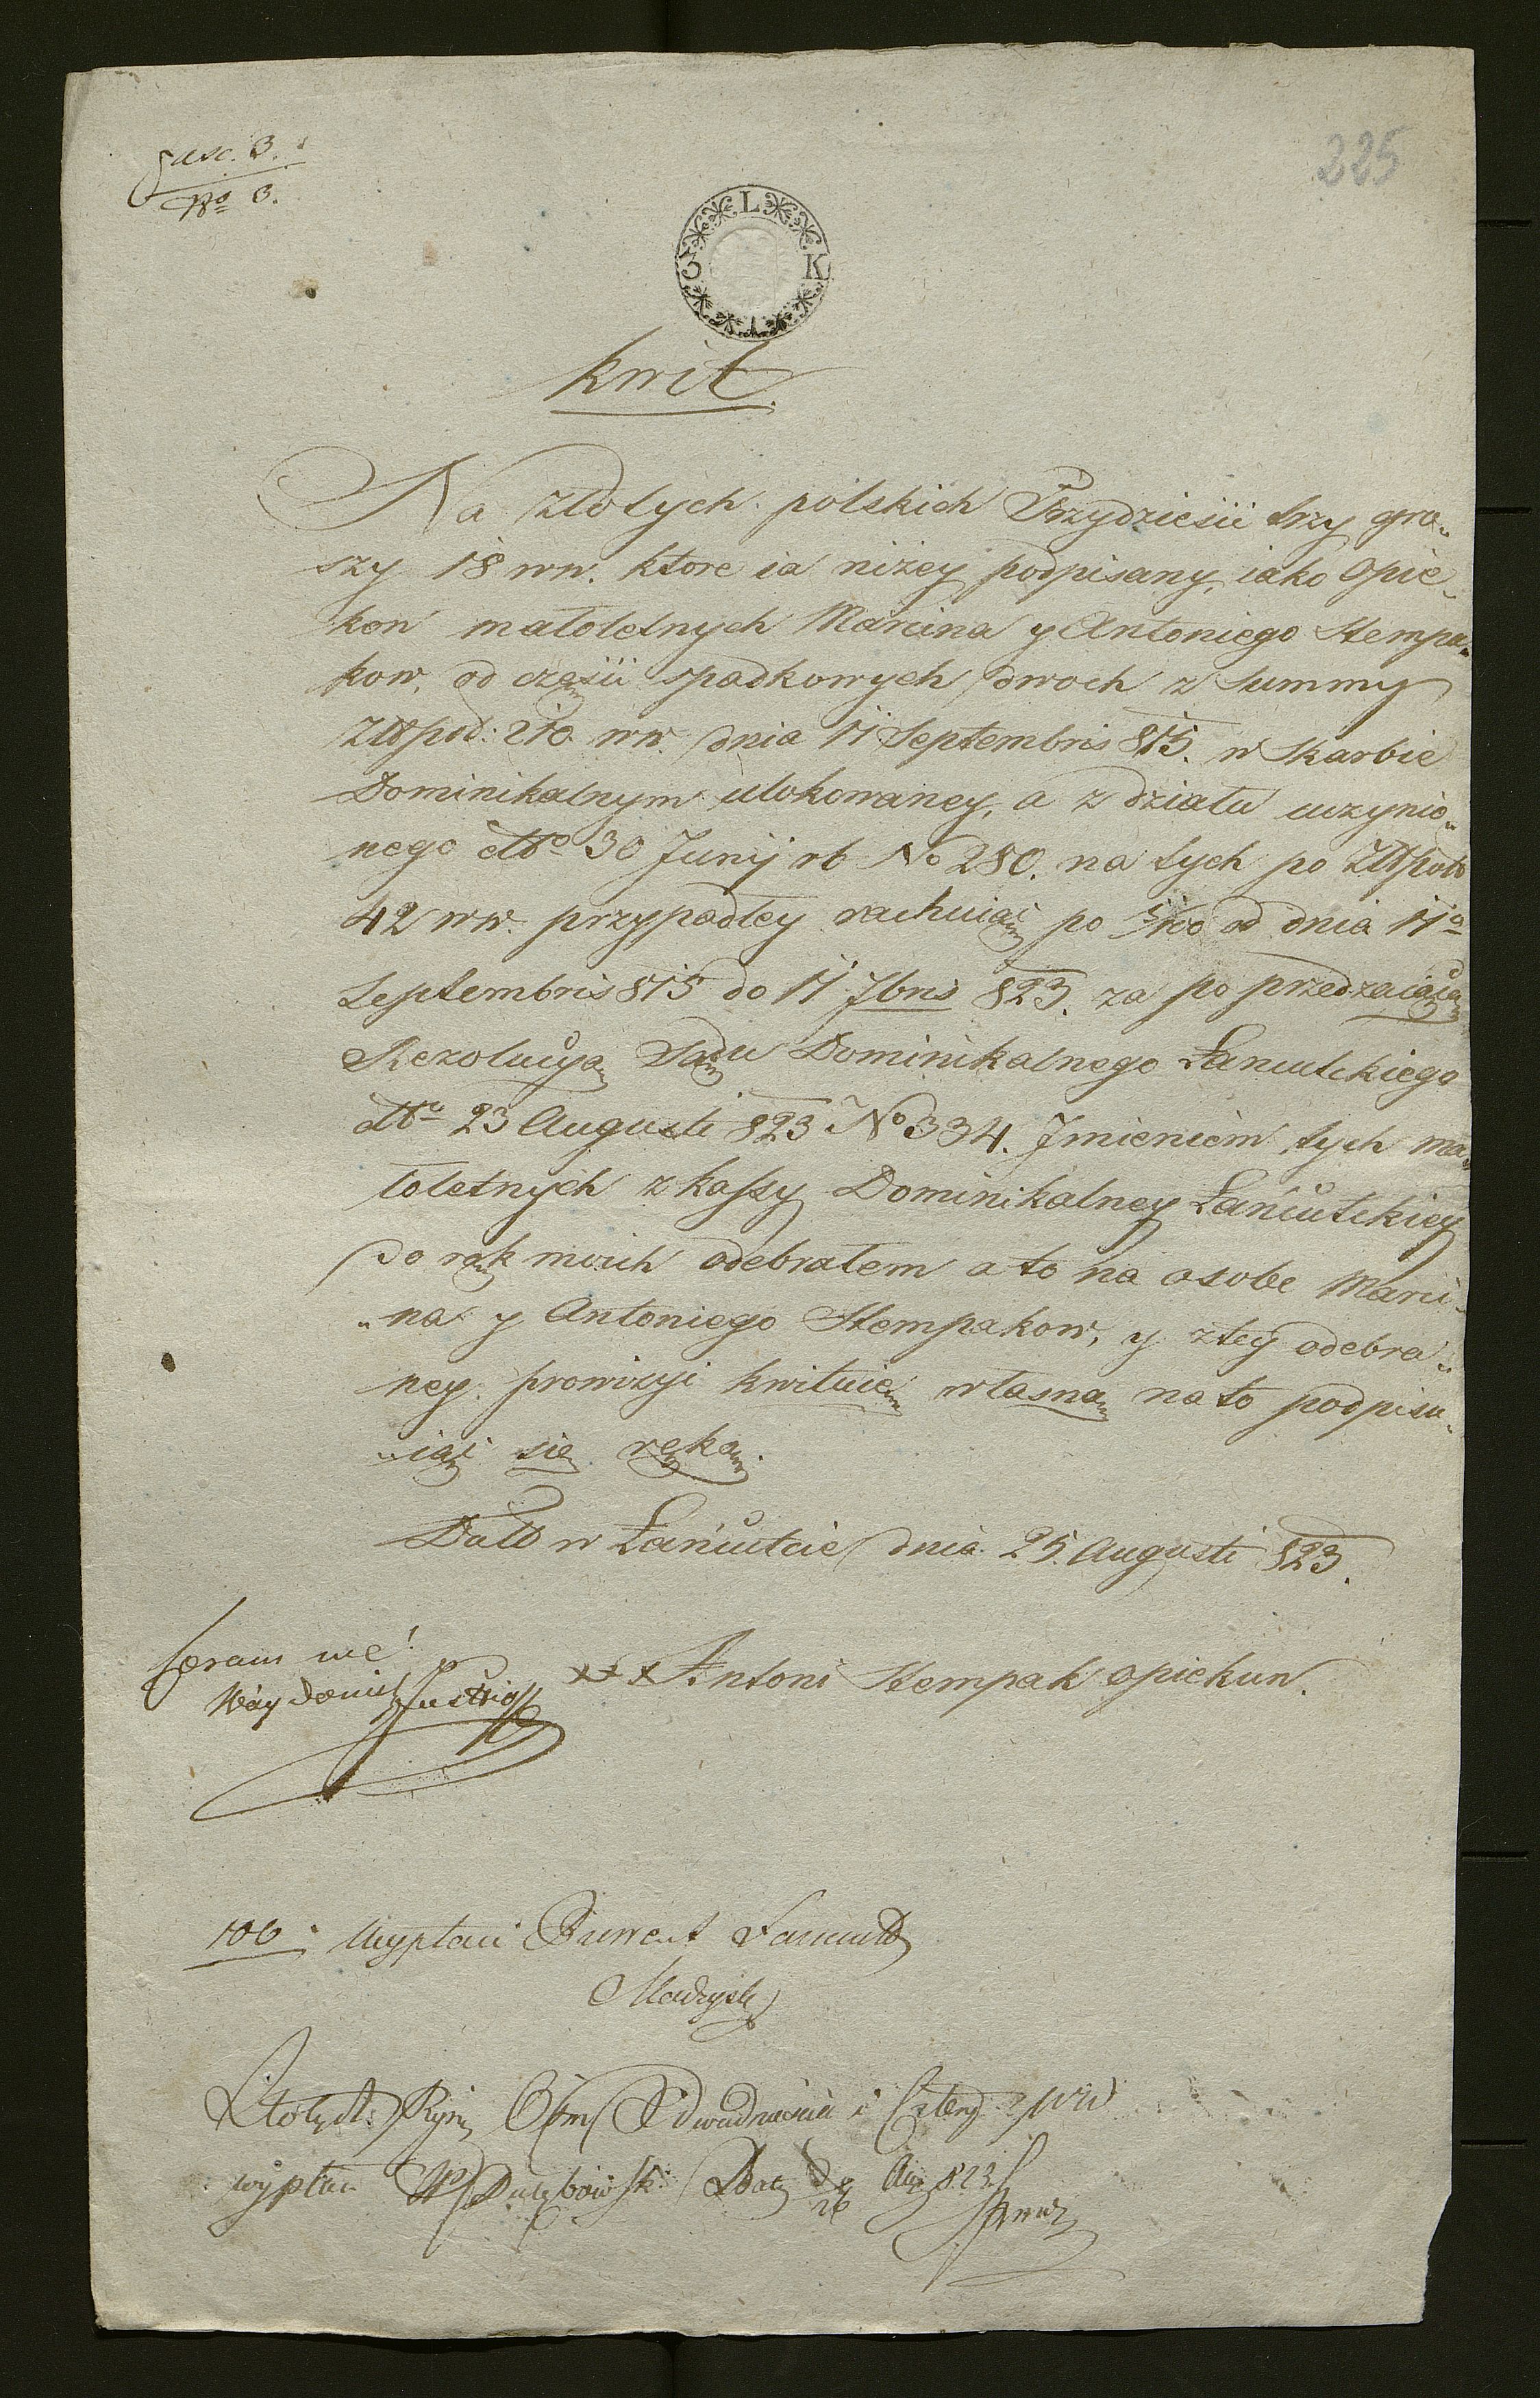 Fasc. 3.
No 3.
225
L
3 K
1
Kwit.
Na złotych polskich Trzydzieści trzy gro„
szy 18 ww. ktore ia niżey podpisany, iako Opie„
kon małoletnych Marcina y Antoniego Stempa„
kow, od części spadkowych dwoch z Summy
Złłpol: 210 ww. dnia 11 Septembris 815. w Skarbie
Dominikalnym ulokowaney, a z działu uczynio„
nego dtto 30 Junij rb No 280. na tych po Złłpol
42 ww. przypadłey rachuiąc po 5/100 od dnia 11o
Septembris 815 do 11 7bris 823. za poprzedzaiącą
Rezolucyą Sądu Dominikalnego Łancutckiego
dtto 23 Augusti 823 No 334. Jmieniem tych ma„
łoletnych z kassy Dominikalney Łańcutckiey
do rąk moich odebrałem a to na osobe Marci„
„na y Antoniego Stempakow, y z tey odebra„
ney prowizyi kwituię własną na to podpisu„
„iąc się ręką.
Datt w Łańcutcie dnia 25. Augusti 823.
Coram me
Justitz
+++ Antoni Stempak opiekun.
106. Wypłaci Łancutt
Złotych Ryn dwadzieścia i Cztery
wypłac Aug 823
26